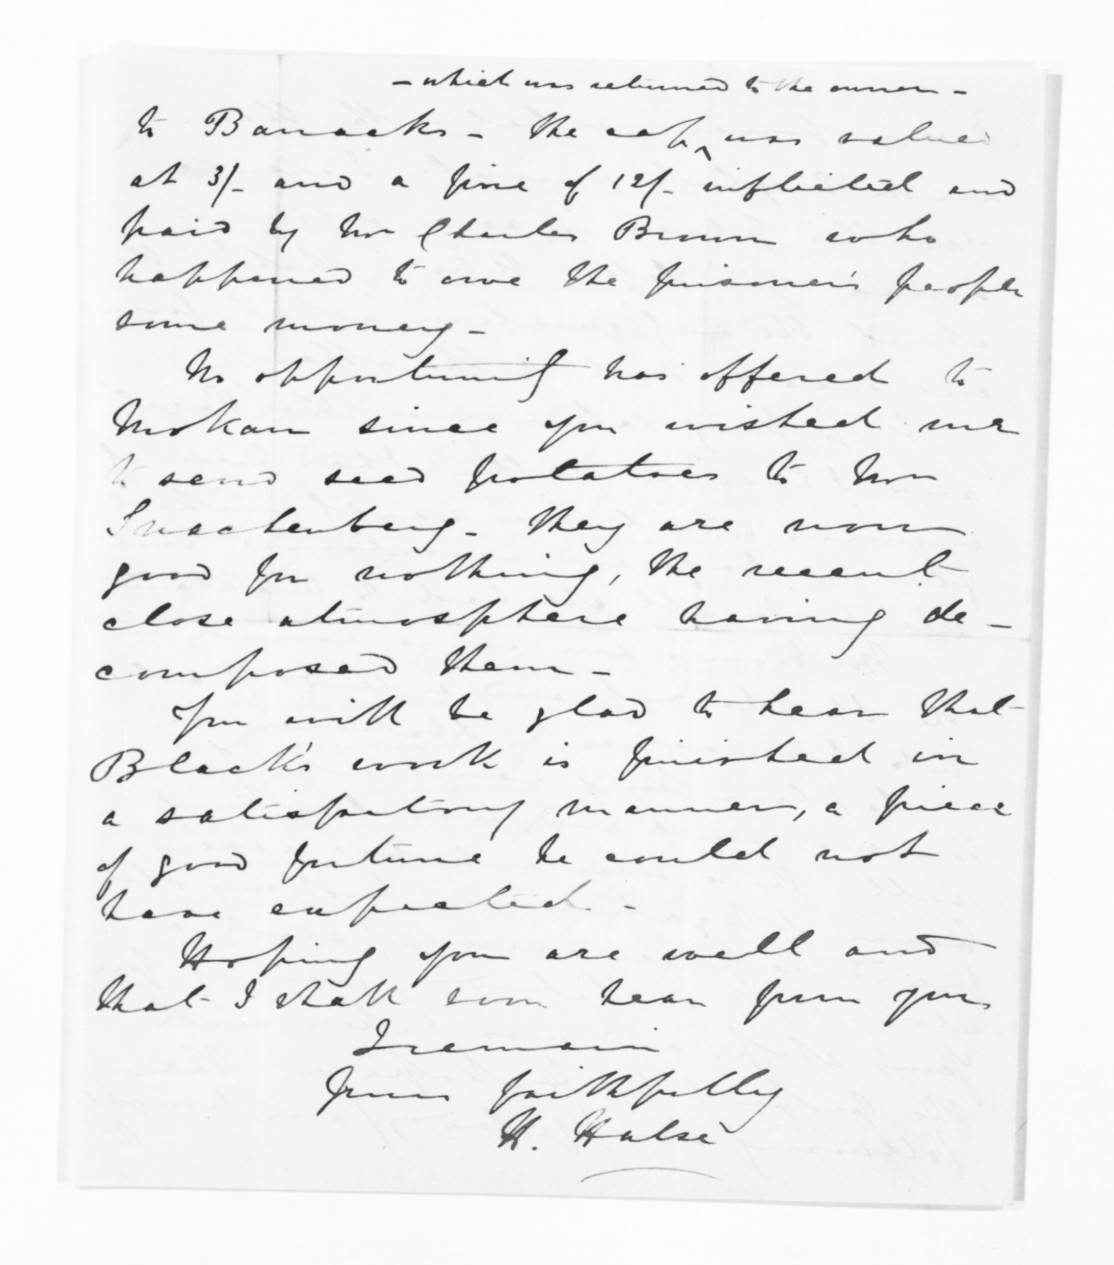 - which was returned to the owner -
to Barracks - the cap ^ was valued
at 3/- and a fine of 12/- inflicted and
paid by Mr Charles Brown who
happened to owe the prisoner's people
some money -
No opportunity has offered to
Mokau since you wished me
to send seed potatoes to Mr
They are now
good for nothing, the recent
close atmosphere having de-
composed them -
You will be glad to hear that
Black's work is finished in
a satisfactory manner, a piece
of good fortune he could not
have expected -
Hoping you are well and
that I shall soon hear from you
I remain
Yours faithfully
H. Halse